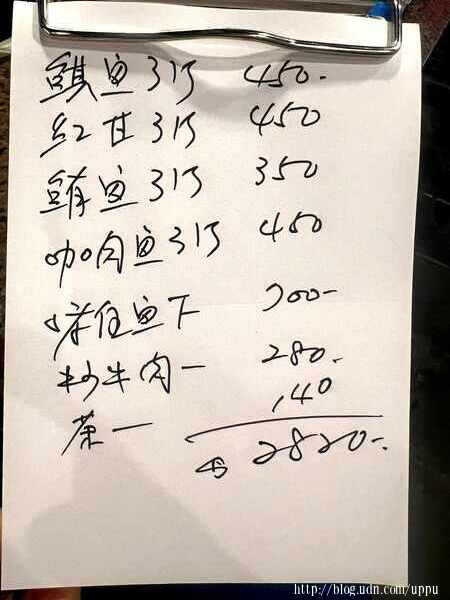 鯕魚3片 450-
紅甘3片 450
鮪魚3片 350
咖肉魚3片 450
魚下 700-
炒牛肉一 280-
茶一 140
2820-
http://blog.udn.com/uppu